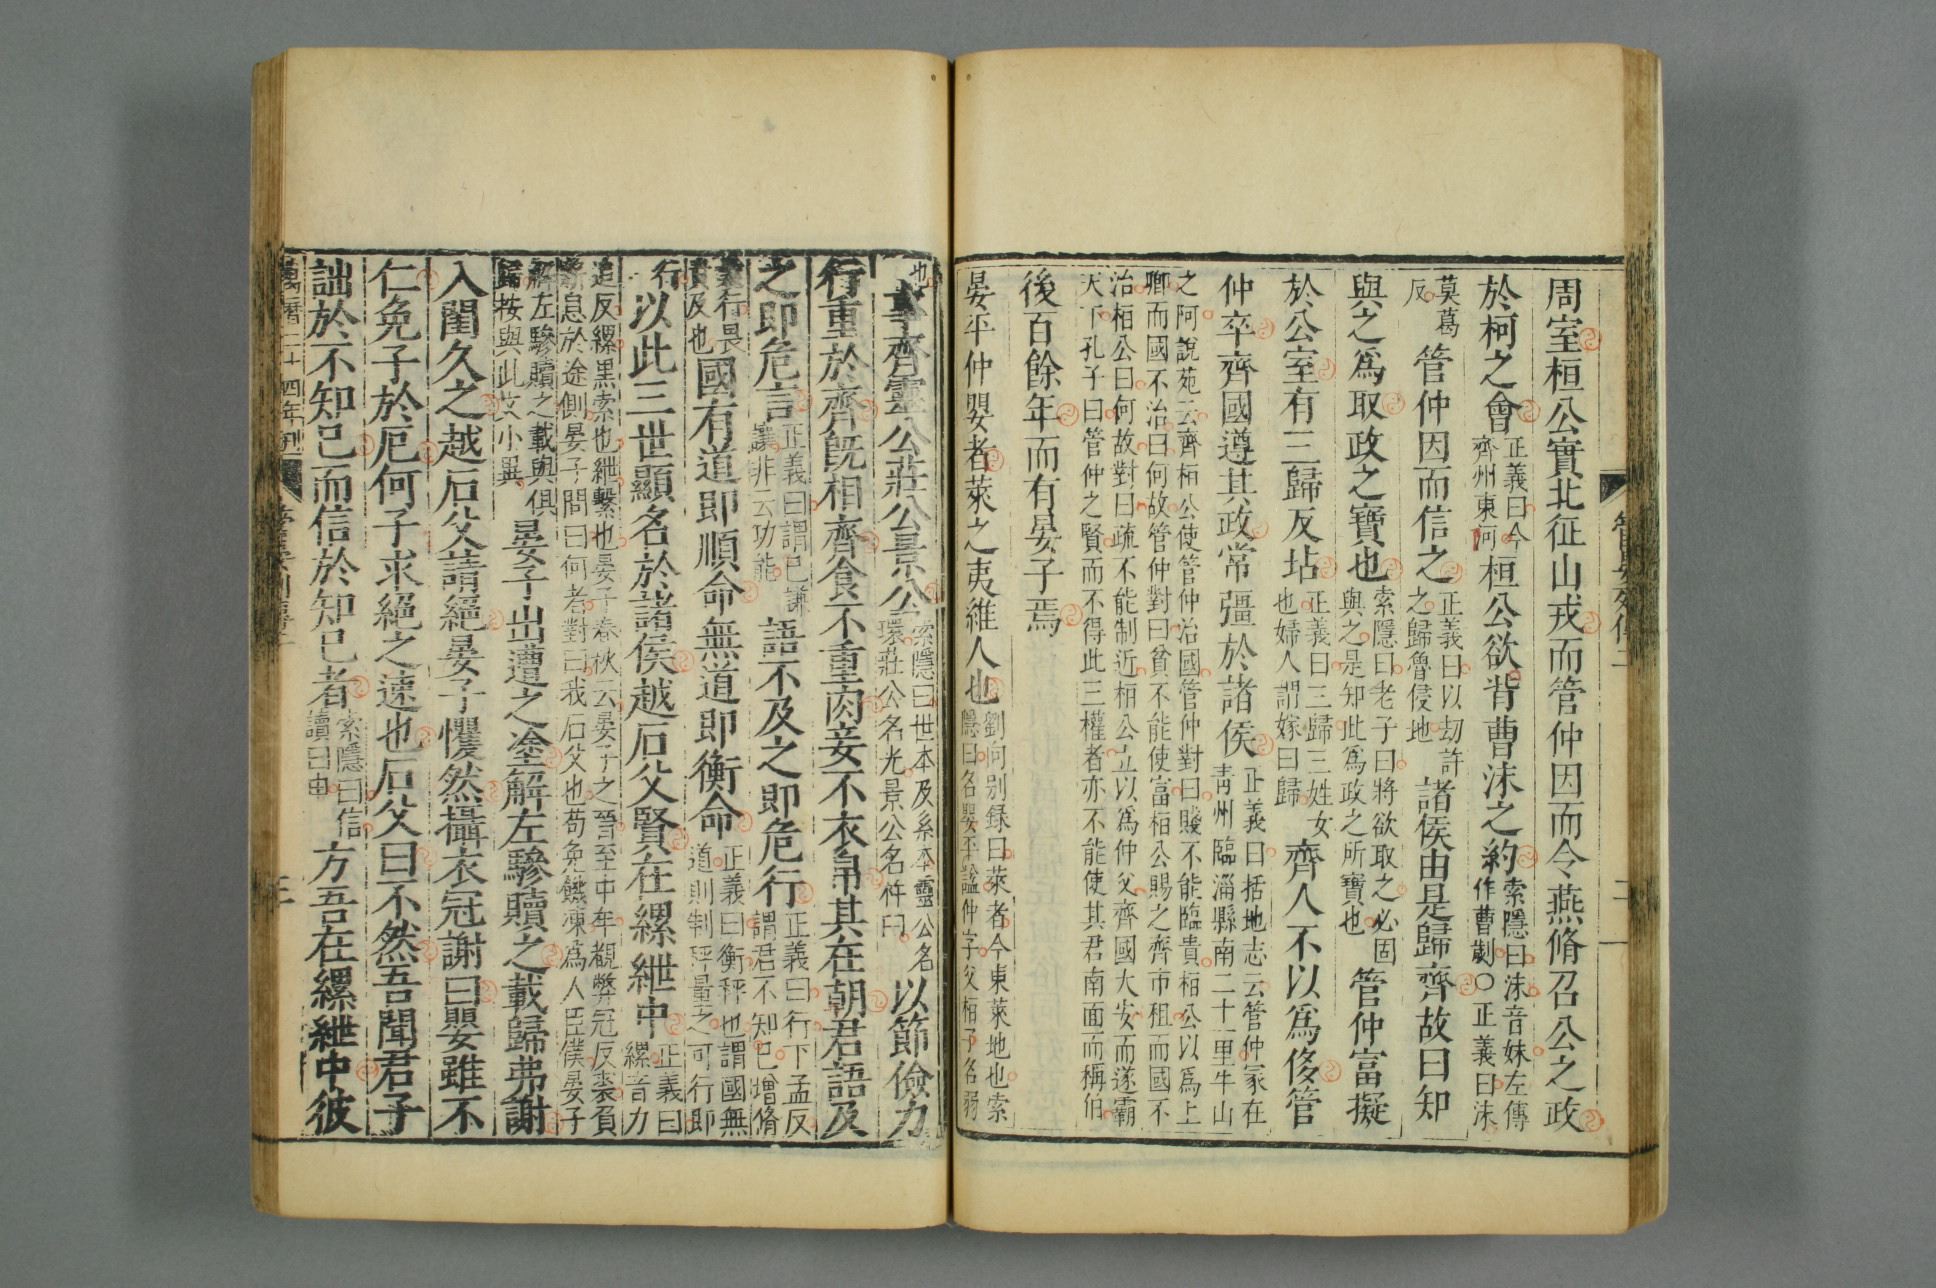 周室桓公實北征山戎而管仲因而令燕脩召公之政
於柯之會正義曰今齊州東河桓公欲背曹沫之約索隱曰沫音妹左傳作曹劌○正義曰沫
莫葛反管仲因而信之正義曰以劫許之歸魯侵地諸侯由是歸齊故曰知
與之爲取政之寶也索隱曰老子曰將欲取之必固與之是知此爲政之所寶也管仲富擬
於公室有三歸反坫正義曰三歸三姓女也婦人謂嫁曰歸齊人不以爲侈管
仲卒齊國遵其政常彊於諸侯正義曰括地志云管仲冢在青州臨淄縣南二十一里牛山
之阿說苑云齊桓公使管仲治國管仲對曰賤不能臨貴桓公以爲上
卿而國不治曰何故管仲對曰貧不能使富桓公賜之齊市租而國不
治桓公曰何故對曰疏不能制近桓公立以爲仲父齊國大安而遂霸
天下孔子曰管仲之賢而不得此三權者亦不能使其君南面而稱伯
後百餘年而有晏子焉
晏平仲嬰者萊之夷維人也劉向別録曰萊者今東萊地也索隱曰名嬰平謚仲字父桓子名弱
管晏列傳二
也事齊靈公莊公景公索隱曰世本及系本靈公名環莊公名光景公名杵臼以節儉力
行重於齊旣相齊食不重肉妾不衣帛其在朝君語及
之即危言正義曰謂已謙讓非云功能語不及之即危行正義曰行下孟反謂君不知已增脩
業行畏責及也國有道即順命無道即衡命正義曰衡秤也謂國無道則制秤量之可行即
行以此三世顯名於諸侯越石父賢在縲紲中正義曰縲音力
追反縲黑索也紲繫也晏子春秋云晏子之晉至中牟覩弊冠反裘負
薪息於途側晏子問曰何者對曰我石父也苟免饑凍爲人臣僕晏子
解左驂贖之載與俱歸按與此文小異晏子出遭之塗解左驂贖之載歸弗謝
入閨久之越石父請絕晏子懼然攝衣冠謝曰嬰雖不
仁免子於厄何子求絕之速也石父曰不然吾聞君子
詘於不知已而信於知已者索隱曰信讀曰申方吾在縲紲中彼
萬曆二十四年刊